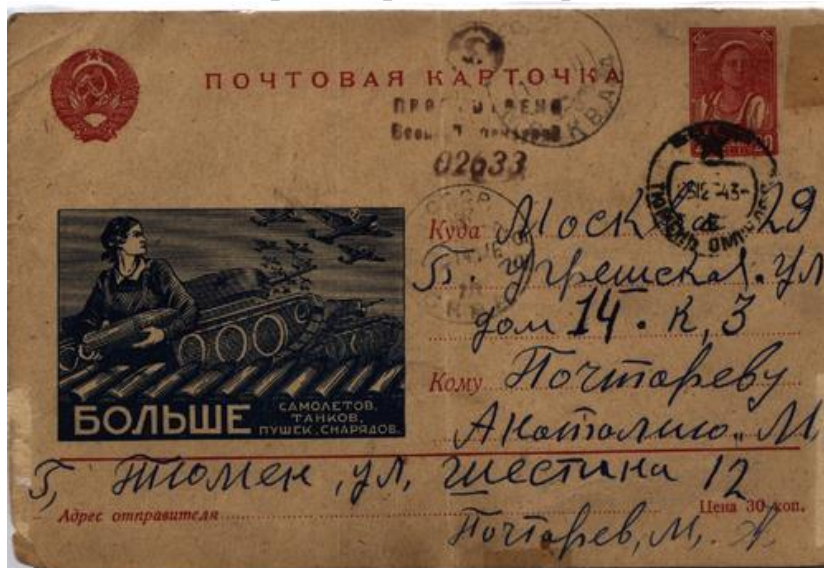 ПОЧТОВАЯ КАРТОЧКА
ПРОСМОТРЕНО
02633
Куда Москва 29
Б. Угрешская. ул
дом 14. К, 3
Кому Почтареву
Анатолию. М
БОЛЬШЕ САМОЛЕТОВ,
ТАНКОВ,
ПУШЕК, СНАРЯДОВ.
Г, Тюмен, ул, Шестина 12
Адрес отправителя
Цена 30 коп.
Почтарев, М,